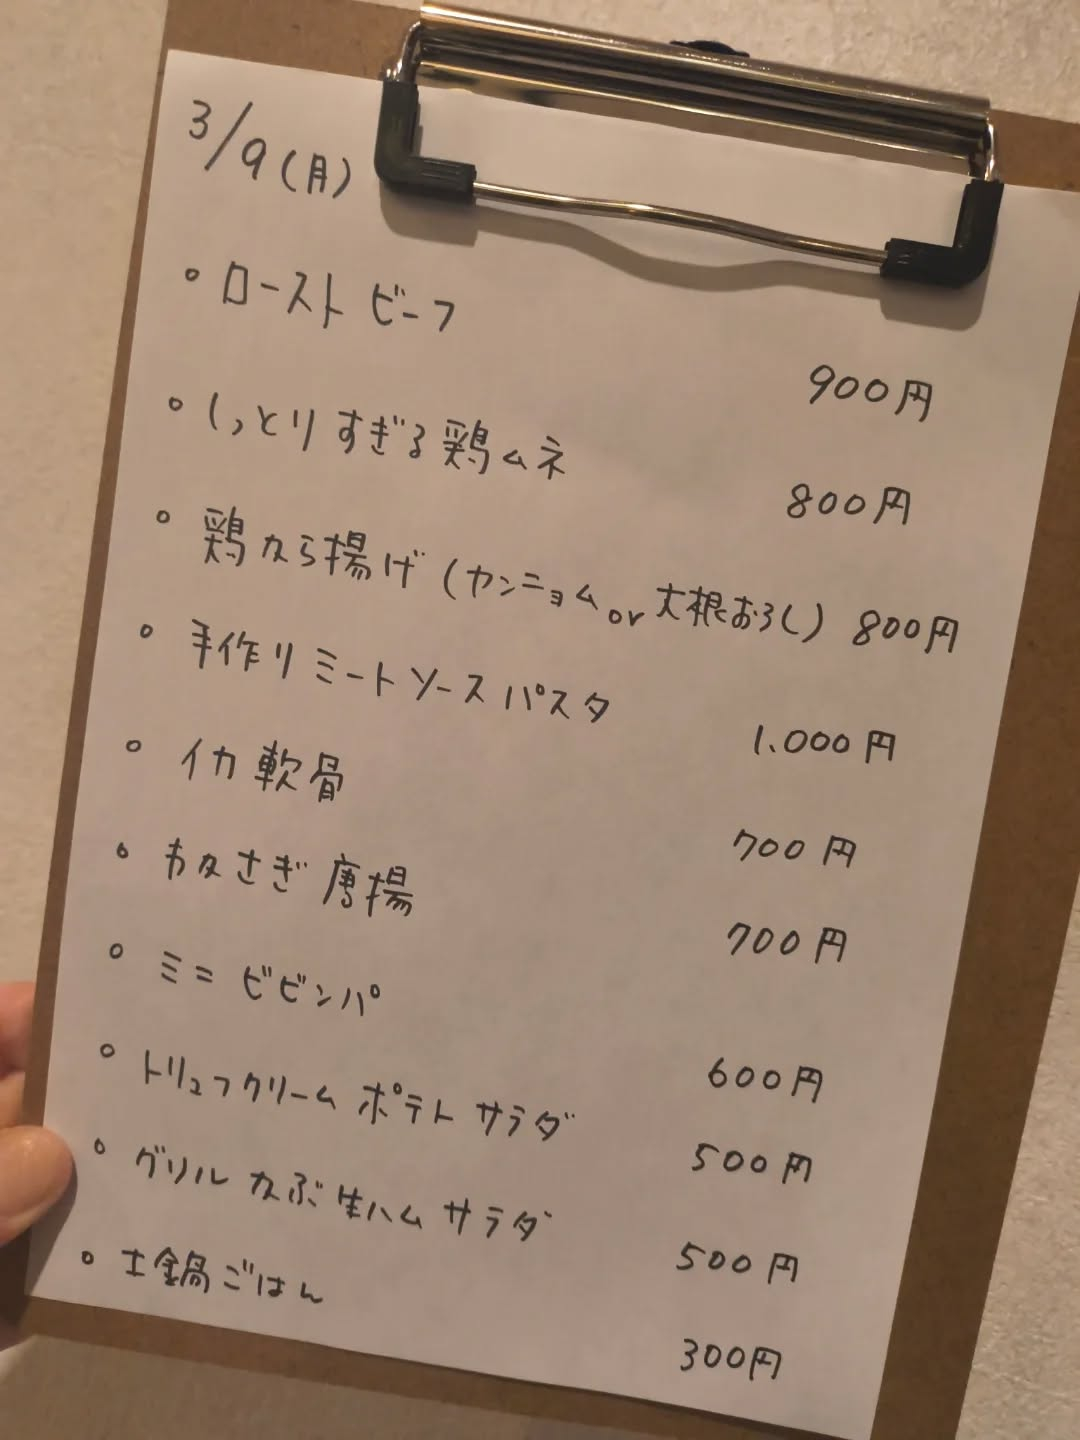 3/9(月)
。ローストビーフ 900円
。しっとりすぎる鶏ムネ 800円
。鶏から揚げ(ヤンニョムor大根おろし) 800円
。手作りミートソースパスタ 1.000円
。イカ軟骨 700円
。わかさぎ唐揚 700円
。ミニビビンパ 600円
。トリュフクリームポテトサラダ 500円
。グリルかぶ生ハムサラダ 500円
。土鍋ごはん 300円